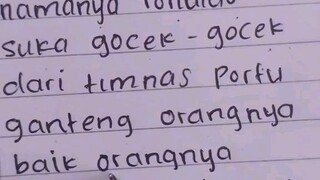 namanya
suka gocek - gocek
dari timnas Portu
ganteng orangnya
baik orangnya